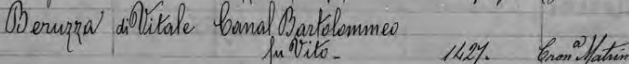 Beruzza di Vitale Canal Bartolommeo
fu Vito - 1427. Cron.ª Matrin